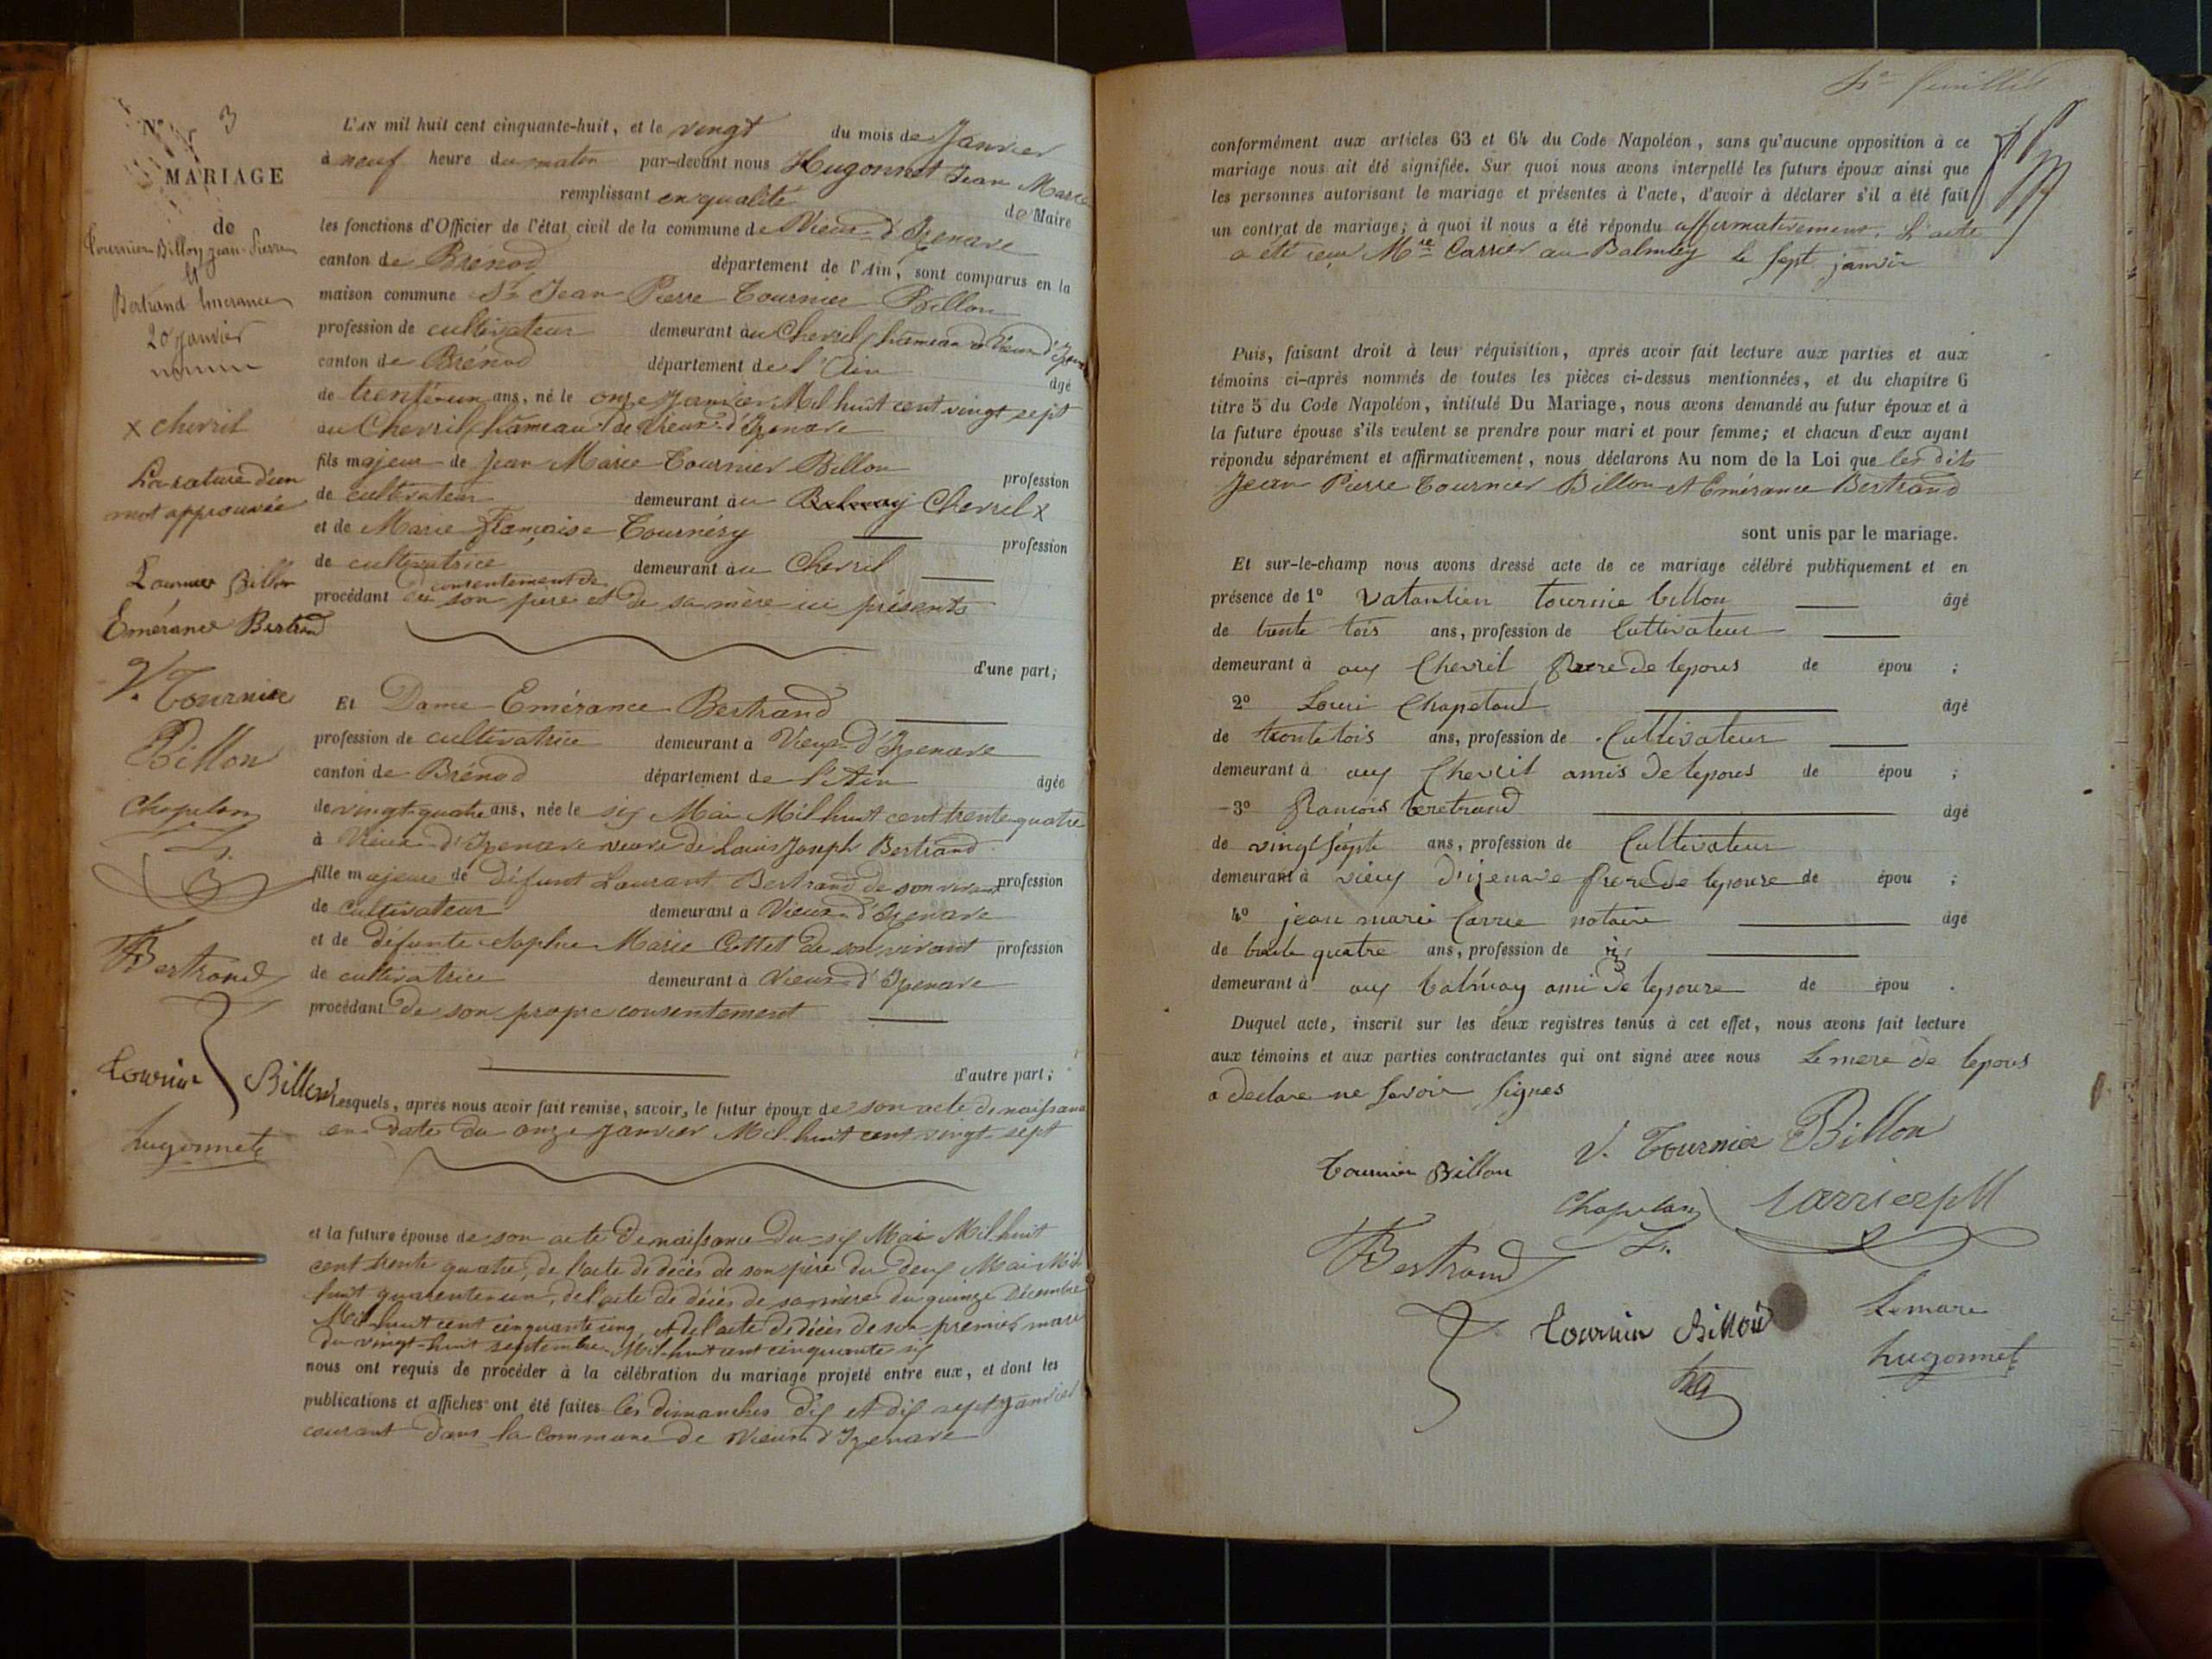 N° 3
MARIAGE
de
Tournier Billon Jean Pierre
et
Bertrand Emérance
20 Janvier
x chevril
La rature d'un
mot approuvée
Tournier Billon
Emérance Bertrand
V. Tournier
Billon
Chapelan
L.
F Bertrand
Tournier Billon
hugonnet
L'AN mil huit cent cinquante-huit, et le vingt du mois de Janvier
à neuf heure du matin par-devant nous Hugonnet Jean Marie
remplissant en qualité de Maire
les fonctions d'Officier de l'état civil de la commune de Vieux-d'Izenave
canton de Brénod département de l'Ain, sont comparus en la
maison commune Sr Jean Pierre Tournier Billon
profession de cultivateur demeurant au Chevril, hameau de Vieux d'Izenave
canton de Brénod département de l'Ain âgé
de trente-un ans, né le onze Janvier Mil huit cent vingt sept
au Chevril, hameau de Vieux-d'Izenave
fils majeur de Jean Marie Tournier Billon profession
de cultivateur demeurant au Balmay Chevril x
et de Marie Françoise Tournéry profession
de cultivatrice demeurant au Chevril
procédant du consentement de son père et de sa mère ici présents
d'une part;
Et Dame Emérance Bertrand
profession de cultivatrice demeurant à Vieux-d'Izenave
canton de Brénod département de l'Ain âgée
de vingt-quatre ans, née le six Mai Mil huit cent trente quatre
à Vieux-d'Izenave veuve de Louis Joseph Bertrand
fille majeure de Défunt Laurant Bertrand de son vivant profession
de cultivateur demeurant à Vieux-d'Izenave
et de défunte Sophie Marie Cottet de son vivant profession
de cultivatrice demeurant à Vieux-d'Izenave
procédant de son propre consentement
d'autre part;
Lesquels, après nous avoir fait remise, savoir, le futur époux de son acte de naissance
en date du onze Janvier Mil huit cent vingt-sept
et la future épouse de son acte de naissance du six Mai Mil huit
cent trente quatre, de l'acte de décès de son père du deux Mai Mil
huit quarente-un, de l'acte de décès de sa mère du quinze Décembre
Mil huit cent cinquante cinq, et de l'acte de décès de son premier mari
du vingt-huit septembre Mil-huit cent cinquante six
nous ont requis de procéder à la célébration du mariage projeté entre eux, et dont les
publications et affiches ont été faites les dimanches dix et dix sept Janvier
courant dans la commune de Vieux-d'Izenave
conformément aux articles 63 et 64 du Code Napoléon, sans qu'aucune opposition à ce
mariage nous ait été signifiée. Sur quoi nous avons interpellé les futurs époux ainsi que
les personnes autorisant le mariage et présentes à l'acte, d'avoir à déclarer s'il a été fait
un contrat de mariage; à quoi il nous a été répondu affirmativement. L'acte
a été reçu Mtre Carrier au Balmey le sept janvier
Puis, faisant droit à leur réquisition, après avoir fait lecture aux parties et aux
témoins ci-après nommés de toutes les pièces ci-dessus mentionnées, et du chapitre 6
titre 5 du Code Napoléon, intitulé Du Mariage, nous avons demandé au futur époux et à
la future épouse s'ils veulent se prendre pour mari et pour femme; et chacun d'eux ayant
répondu séparément et affirmativement, nous déclarons Au nom de la Loi que les dits
Jean Pierre Tournier Billon et Emérance Bertrand
sont unis par le mariage.
Et sur-le-champ nous avons dressé acte de ce mariage célébré publiquement et en
présence de 1° Vatantien tournie billon âgé
de trente tois ans, profession de Cultivateur
demeurant à aux Chevril frere de lepous de épou ;
2° Loui Chapetant âgé
de trente tois ans, profession de Cultivateur
demeurant à aux Chevril amis de lepous de épou ;
3° francois beretrand âgé
de vingt sépte ans, profession de Cultivateur
demeurant à vieux d'izenave frere de lepouse de épou ;
4° jean marie Carrie notaire âgé
de trente quatre ans, profession de
demeurant à aux balmay ami de lepouse de épou .
Duquel acte, inscrit sur les deux registres tenus à cet effet, nous avons fait lecture
aux témoins et aux parties contractantes qui ont signé avec nous Le mere de lepous
a declare ne savoir signes
Tournier Billon V. Tournier Billon
Chapelan L. Carrier JM
F Bertrand
Tournier Billon Le maire
hugonnet